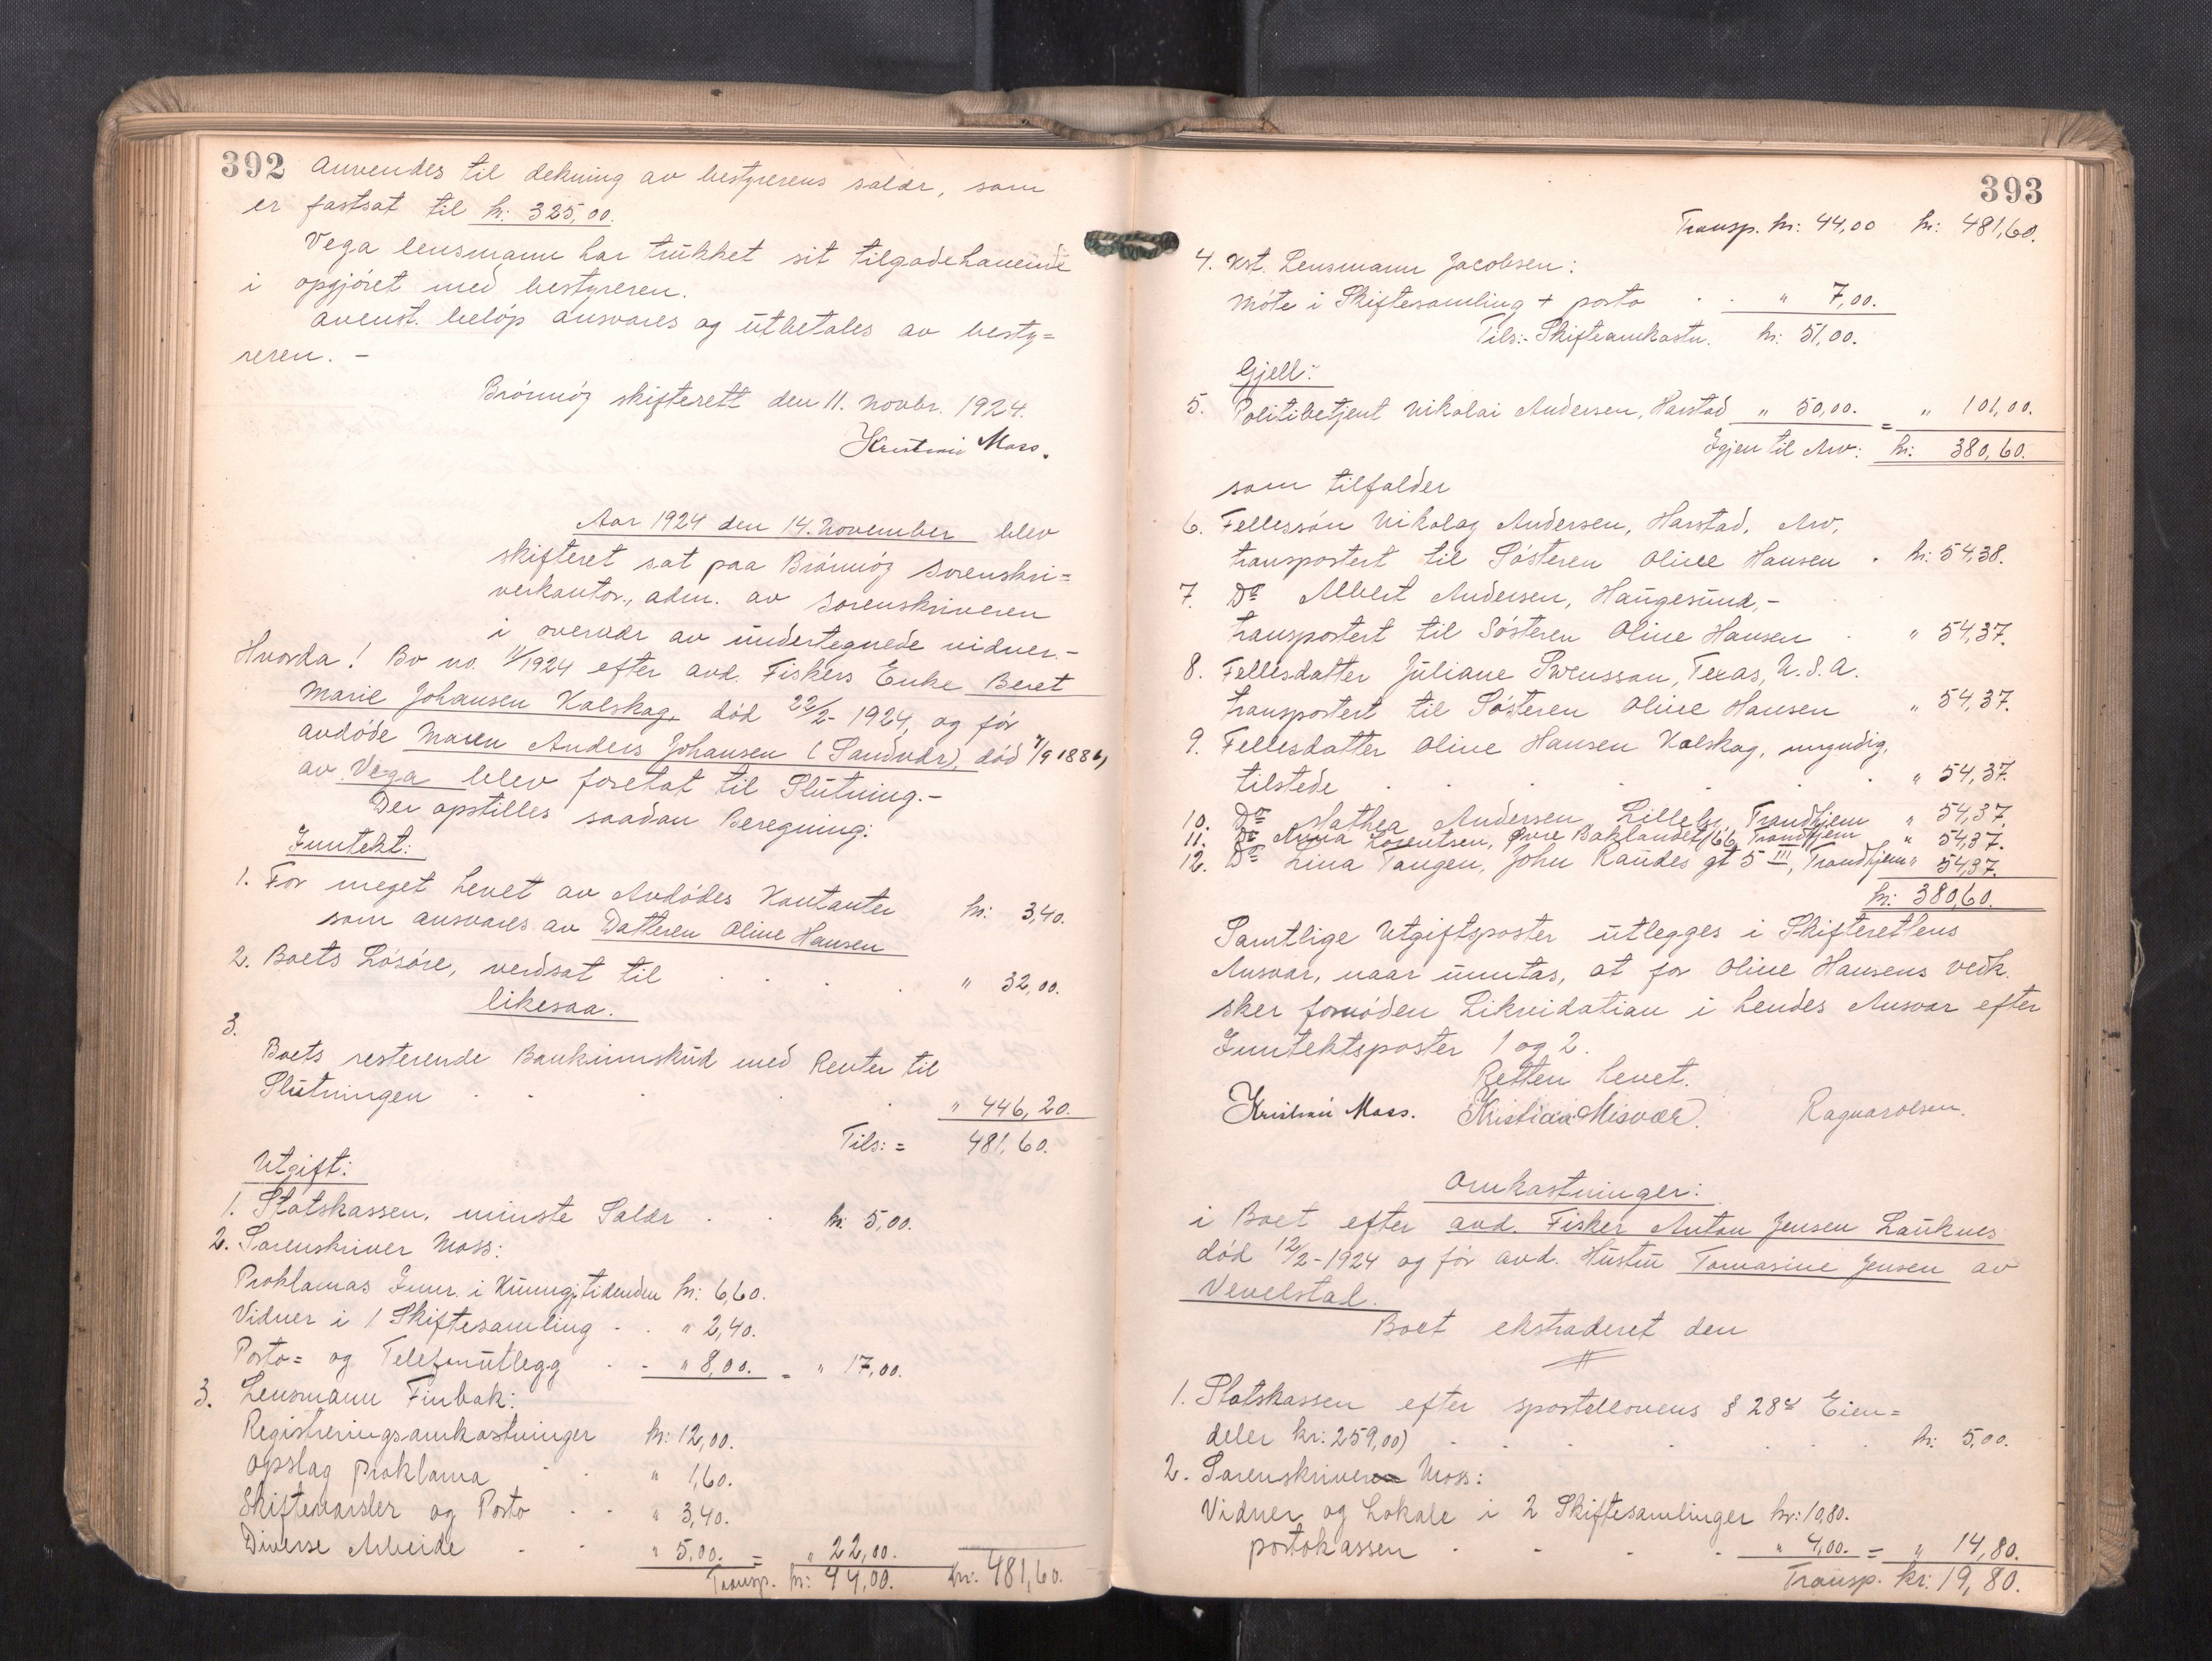 392 Anvendes til dekning av bestyrerens salær, som
er fastsat til kr: 325,00.
Vega lensmann har trukket sit tilgodehavende
i opgjøret med bestyreren.
Ovenst. beløp ansvares og utbetales av besty=
reren. -
Brønnøy skifterett den 11. Novbr. 1924.
Kristian Moss.
Aar 1924 den 14. November blev
skifteret sat paa Brønnøy Sorenskri=
verkontor., adm. av Sorenskriveren
i overvær av undertegnede vidner.-
Hvorda! Bo no. 11/1924 efter avd. Fiskers Enke Beret
Marie Johansen Kalskag, død 22/2- 1924, og før
avdøde Mann Anders Johansen (Sandvær), død 7/9 1886,
av Vega blev foretat til Slutning.-
Der opstilles saadan Beregning:
Inntekt:
1. For meget hevet av Avdødes Kontanter
som ansvares av Datteren Oline Hansen kr: 3,40.
2. Boets Løsøre, verdsat til . . . . " 32,00.
likesaa.
3.
Boets resterende Bankinnskud med Renter til
Slutningen . . . . " 446,20.
Tils: = 481,60.
Utgift:
1. Statskassen, minste Salær . . kr: 5,00.
2. Sorenskriver Moss:
Proklamas Innr. i Kunngj.tidenden kr: 6,60.
Vidner i 1 Skiftesamling . . " 2,40.
Porto= og Telefonutlegg . . " 8,00. = " 17,00.
3. Lensmann Finbak:
Registreringsomkostninger kr: 12,00.
Opslag proklama . . " 1,60.
Skiftevarsler og Porto . . " 3,40.
Diverse Arbeide . . " 5,00. = " 22,00.
Transp. kr: 44,00. kr: 481,60.
393
Transp. kr: 44,00 kr: 481,60.
4. Kst. Lensmann Jacobsen:
Møte i Skiftesamling + porto . . " 7,00.
Tils:- Skifteomkostn. kr: 51,00.
Gjell:
5. Politibetjent Nikolai Andersen, Harstad " 50,00. = " 101,00.
Igjen til Arv: kr: 380,60.
som tilfalder
6. Fellessøn Nikolay Andersen, Harstad, Arv,
transportert til Søsteren Oline Hansen . kr: 54,38.
7. Do Albert Andersen, Haugesund,-
transportert til Søsteren Oline Hansen . " 54,37.
8. Fellesdatter Juliane Swensson, Texas, U.S.A.
transportert til Søsteren Oline Hansen " 54,37.
9. Fellesdatter Oline Hansen Kalskag, myndig,
tilstede . . . . . " 54,37.
10. Do Mathea Andersen Lilleby, Trondhjem " 54,37.
11. Do Anna Lorentsen, Øvre Baklandet 66, Trondhjem " 54,37.
12. Do Lina Tangen, John Raudes gt 5 III, Trondhjem " 54,37.
kr: 380,60.
Samtlige Utgiftsposter utlegges i Skifterettens
Ansvar, naar unntas, at for Oline Hansens vedk.
sker fornøden Likvidation i hendes Ansvar efter
Inntektsposter 1 og 2.
Retten hevet.
Kristian Moss. Kristian Misvær. Ragnar Olsen.
Omkostninger:
i Boet efter avd. Fisker Anton Jensen Lauknes
død 12/2-1924 og før avd. Hustru Tomasine Jensen av
Vevelstad.
Boet ekstraderet den
1. Statskassen efter sportellovens § 28 Eien=
deler kr: 259,00) . . . . . kr: 5,00.
2. Sorenskriver Moss:
Vidner og Lokale i 2 Skiftesamlinger kr: 10,80.
portokassen . . . . " 4,00. = " 14,80.
Transp. kr: 19,80.